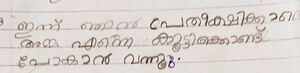 ഇന്ന് ഞാൻ പ്രതീക്ഷിക്കാതെ
അമ്മ എന്നെ കൂട്ടിക്കൊണ്ട്
പോകാൻ വന്നു.